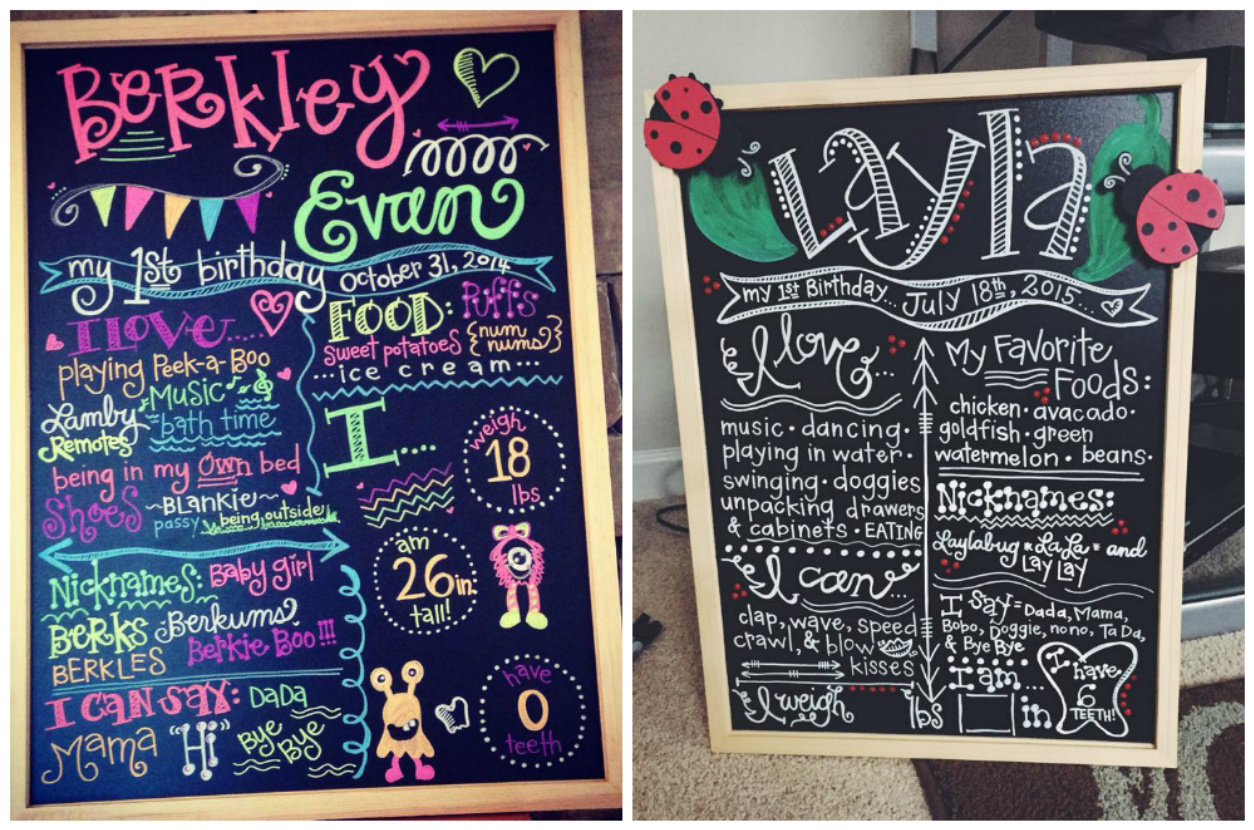 Berkley
Evan
my 1st birthday October 31, 2014
I LOVE....
playing Peek-a-Boo
Music
Lamby
bath time
Remotes
being in my own bed
Shoes
~BLANKIE~
passy
being outside!
FOOD: Puffs
sweet potatoes {num nums}
...ice cream...
I...
weigh
18
lbs
am
26 in.
tall!
have
0
teeth
Nicknames: Baby girl
BERKS Berkums?
BERKLES Berkie Boo!!!
I CAN SAY: DADA
Mama "Hi" Bye Bye
Layla
my 1st Birthday... July 18th, 2015...
I love...
music · dancing ·
playing in water ·
swinging · doggies
unpacking drawers
& cabinets · EATING
I can...
clap, wave, speed
crawl, & blow
kisses
I weigh lbs
My Favorite
Foods:
chicken · avacado ·
goldfish · green
watermelon · beans ·
Nicknames:
Laylabug * LaLa * and
Lay Lay
I say = Dada, Mama,
Bobo, Doggie, no no, Ta Da,
& Bye Bye
I am...
in
I have
6
TEETH!